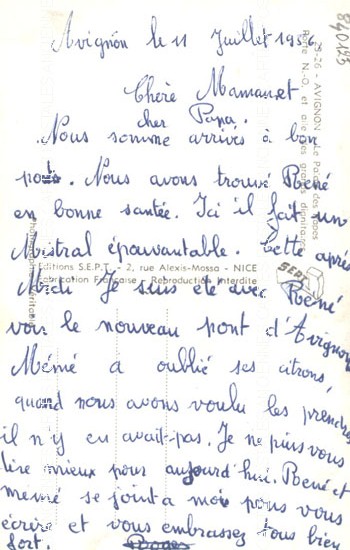 Avignon le 11 Juillet 1956
Chère Maman et
cher Papa.
Nous somme arrivés à bon
port. Nous avons trouvé René
en bonne santée. Ici il fait un
Mistral épouvantable. Cette aprés
Midi Je suis été avec René
voir le nouveau pont d'Avignon
Mémé a oublié ses citrons,
quand nous avons voulu les prendre
il n'y en avait pas. Je ne puis vous
dire mieux pour aujourd'hui. René et
memé se joint a moi pour vous
écrire et vous embrassez tous bien
fort.
25-26 - AVIGNON - Le Palais des Papes
Porte N.-O. et aile des grands dignitaires
Editions S.E.P.T. - 2, rue Alexis-Mossa - NICE
Fabrication Française - Reproduction Interdite
SEPT